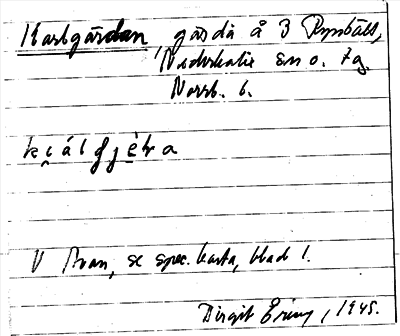 Karlgårdan, gårda å 3 Rynbäck,
Nederkalix sn o. tg.
Norrb. l.
kįálgję̀ra
V Avan, se spec. karta, blad 1.
Birgit Ering, 1945.